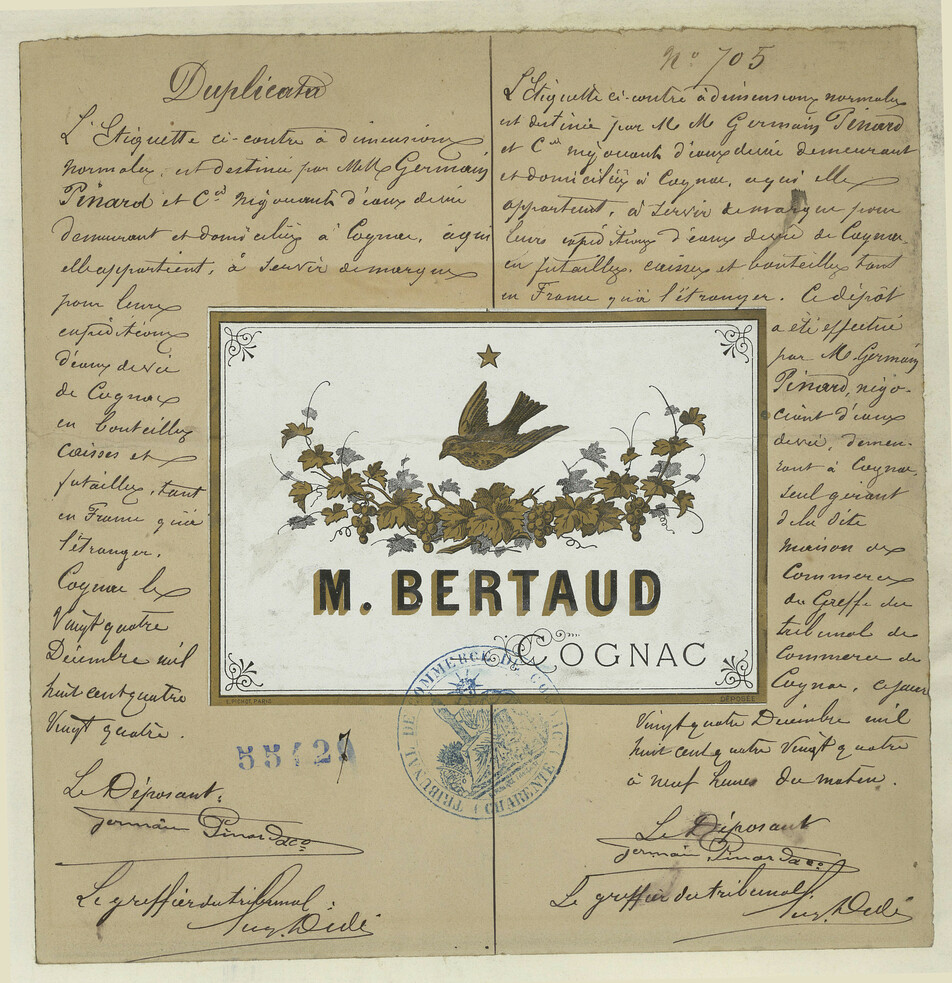 Duplicata
L'Etiquette ci-contre à dimensions
normales, est destinée par MM Germain
Pinard et Cie négociants d'eaux de vie
demeurant et domiciliés à Cognac, à qui
elle appartient, à servir de marque
pour leurs
expéditions
d'eaux de vie
de Cognac
en bouteilles
caisses et
futailles, tant
en France qu'à
l'étranger.
Cognac le
Vingt quatre
Décembre mil
huit cent quatre
Vingt quatre.
Le Déposant:
Germain Pinard & Co
Le greffier du tribunal:
Aug. Dedé
No 705
L'Etiquette ci-contre à dimensions normales
est destinée par M M Germain Pinard
et Cie négociants d'eaux de vie demeurant
et domiciliés à Cognac, à qui elle
appartient, à servir de marque pour
leurs expéditions d'eaux de vie de Cognac
en futailles, caisses et bouteilles tant
en France qu'à l'étranger. Ce dépôt
a été effectué
par M. Germain
Pinard, négo-
ciant d'eaux
de vie, demeu-
rant à Cognac,
seul gérant
de la dite
maison de
Commerce
au Greffe du
tribunal de
Commerce de
Cognac, ce jour
Vingt quatre Décembre mil
huit cent quatre Vingt quatre
à neuf heures du matin.
Le Déposant
Germain Pinard & Co
Le greffier du tribunal
Aug. Dedé
M. BERTAUD
COGNAC
DÉPOSÉE
TRIBUNAL DE COMMERCE DE COGNAC
CHARENTE